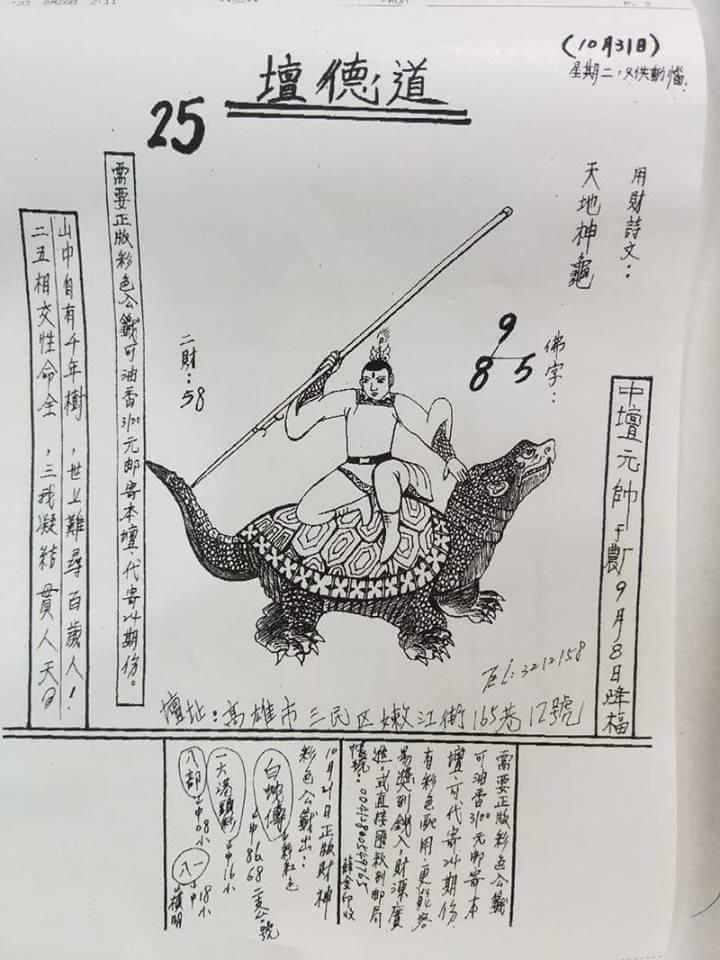 (10月31日)
星期二，只供動腦.
壇德道
25
用財詩文：
天地神龜
佛字：
9
8 5
二財：58
中壇元帥于農厂9月8日降福
需要正版彩色公籤可油香3100元邮寄本壇．代寄24期份。
山中自有千年樹，世上難尋百歲人！
二五相交性命全，三我凝結貫人天
Tel:3212158
壇址：高雄市三民区嫩江街165巷12號
需要正版彩色公籤
可油香3100元邮寄本
壇．可代寄24期份．
有彩色配用．更能容
易獎到錢入，財源廣
進．式直接匯款到邮局
10月21日正版財神
彩色公籤出：
白蛇傳
粉紅色
中86
68二支公號
一大港頭彩
中16小
八部
中08小
八一
中18小